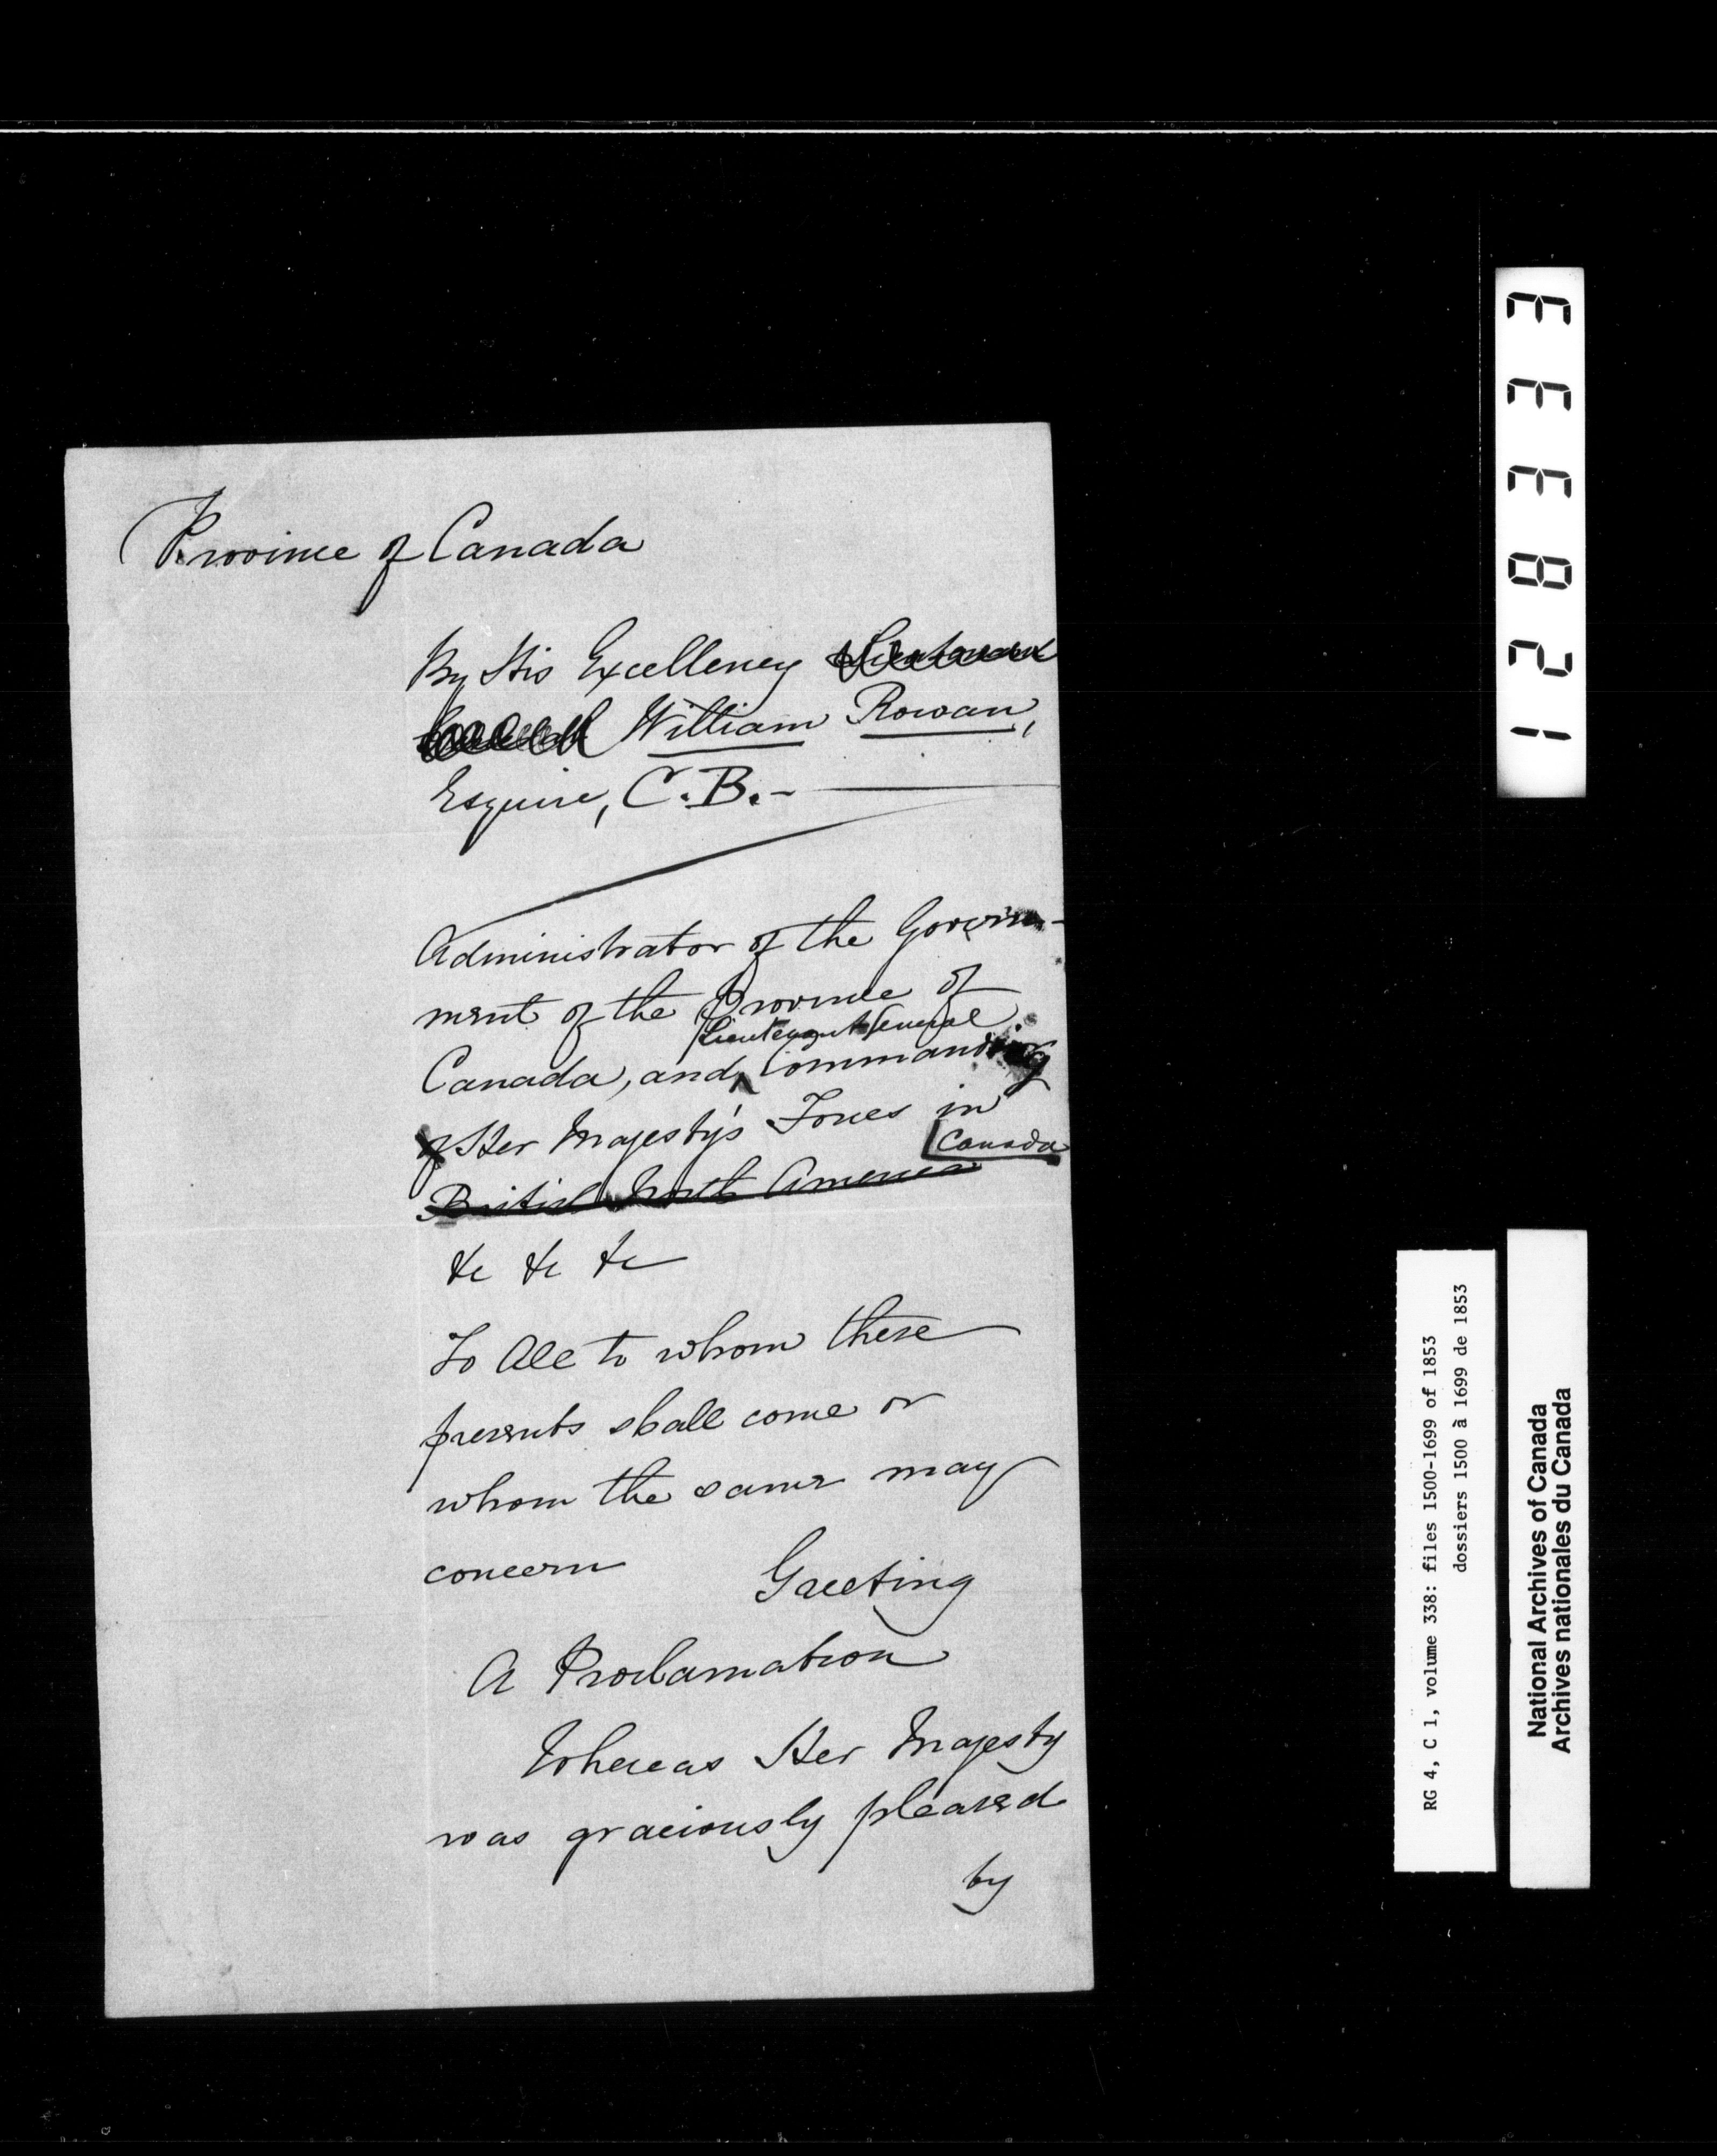 Province of Canada
By His Excellency Lieutenant
William Rowan,
Esquire, C.B. -
Administrator of the Govern-
ment of the Province of
Lieutenant General
Canada, and Commanding
of Her Majesty's Forces in
Canada
British North America
&c &c &c
To All to whom these
presents shall come or
whom the same may
concern Greeting
A Proclamation
Whereas Her Majesty
was graciously pleased
by
128333
RG 4, C 1, volume 338: files 1500-1699 of 1853
dossiers 1500 à 1699 de 1853
National Archives of Canada
Archives nationales du Canada